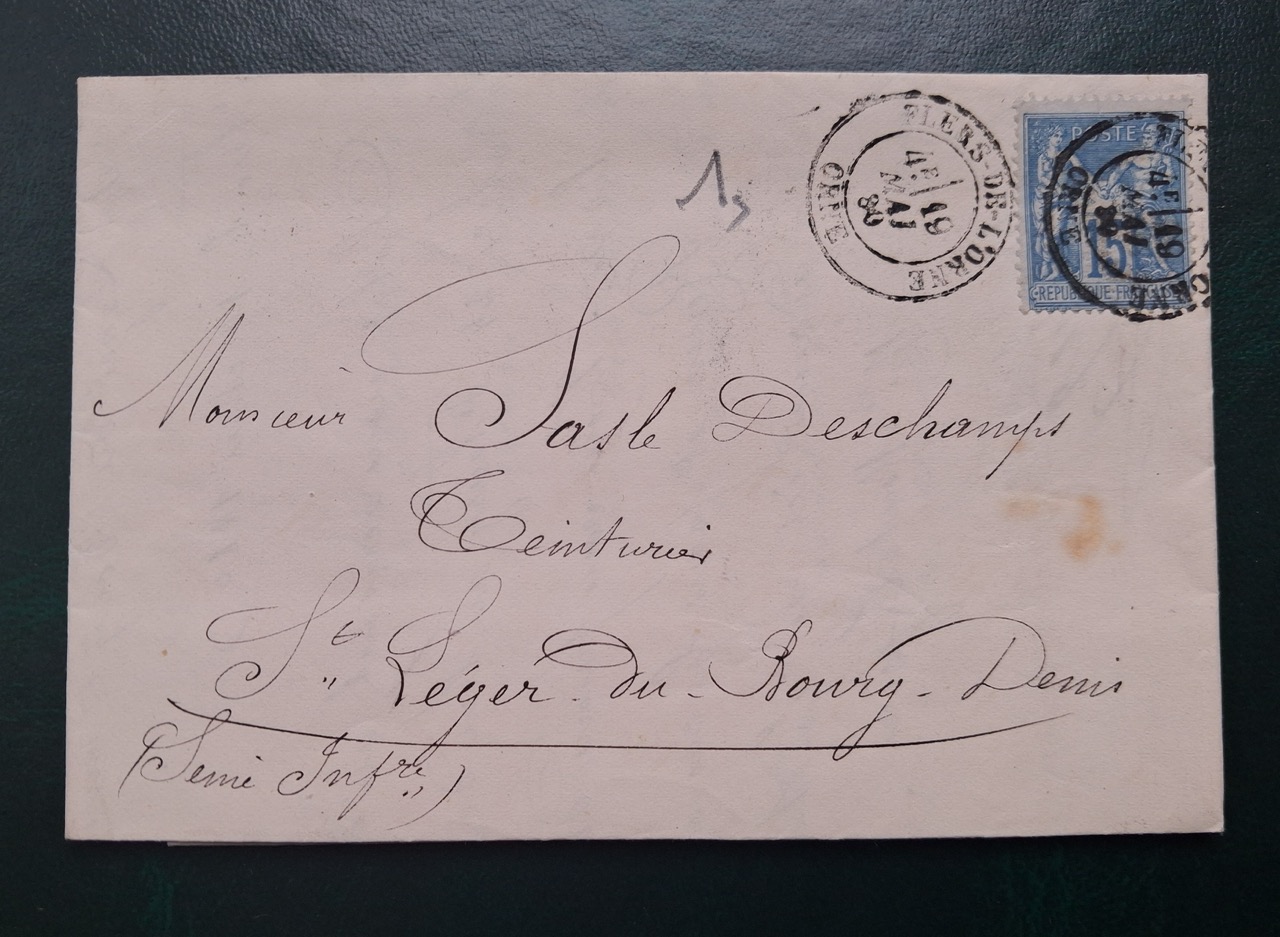 FLERS-DE-L'ORNE
4E 19
MAI
80
ORNE
POSTE
15
REPUBLIQUE FRANÇAISE
4E 19
MAI
80
ORNE
Monsieur Sasle Deschamps
Teinturier
St Léger-du-Bourg-Denis
(Seine Infre)